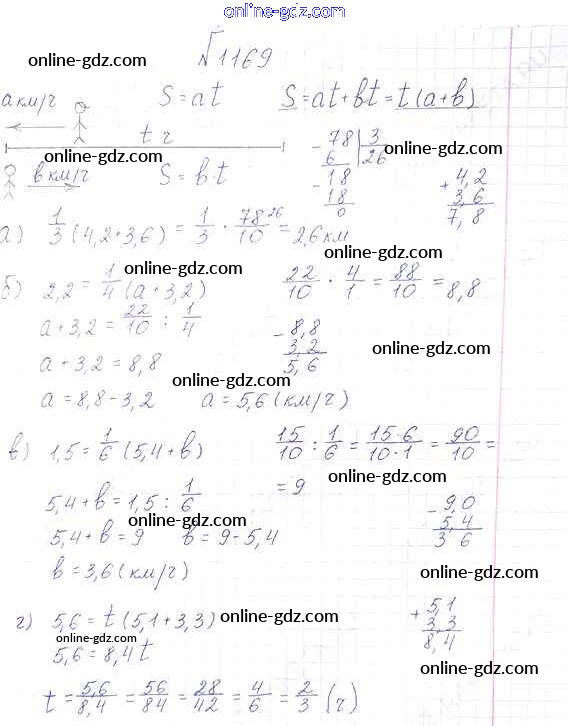 online-gdz.com
№1169
online-gdz.com
a км/ч S=at S=at+bt=t(a+b)
t ч
online-gdz.com
в км/ч S=b·t
78 | 3
6 26
18
18
0
online-gdz.com
+ 4,2
3,6
7,8
а) 1/3 (4,2+3,6) = 1/3 · 78 26/10 = 2,6 км
online-gdz.com
online-gdz.com
б) 2,2 = 1/4 (a+3,2) 22/10 · 4/1 = 88/10 = 8,8
a+3,2 = 22/10 : 1/4
a+3,2 = 8,8
- 8,8
3,2
5,6
online-gdz.com
online-gdz.com
a = 8,8-3,2 a = 5,6 (км/ч)
в) 1,5 = 1/6 (5,4+b) 15/10 : 1/6 = 15·6/10·1 = 90/10 =
= 9
online-gdz.com
5,4+b = 1,5 : 1/6
online-gdz.com
5,4+b = 9 b = 9-5,4
- 9,0
5,4
3 6
b = 3,6 (км/ч)
online-gdz.com
г) 5,6 = t (5,1+3,3)
online-gdz.com
+ 5,1
3,3
8,4
online-gdz.com
5,6 = 8,4 t
online-gdz.com
t = 5,6/8,4 = 56/84 = 28/42 = 4/6 = 2/3 (ч)